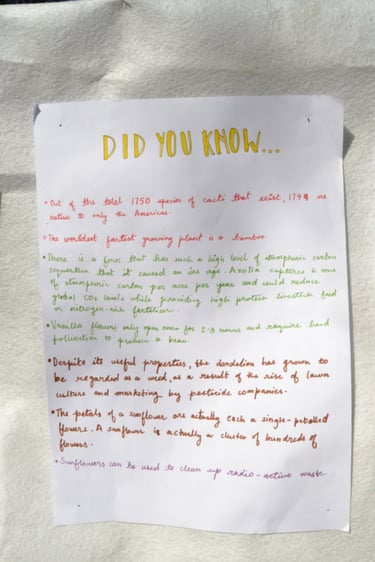 DID YOU KNOW...
• Out of the total 1750 species of cacti that exist, 1749 are
native to only the Americas.
• The worldest fastest growing plant is a bamboo.
• There is a fern that has such a high level of atmospheric carbon
sequestration that it caused an ice age. Azolla captures 21 tons
of atmospheric carbon per acre per year and could reduce
global CO2 levels while providing high protein livestock feed
or nitrogen-rich fertilizer.
• Vanilla flowers only open once for 2-3 hours and require hand
pollination to produce a bean.
• Despite its useful properties, the dandelion has grown to
be regarded as a weed, as a result of the rise of lawn
culture and marketing by pesticide companies.
• The petals of a sunflower are actually each a single-petalled
flower. A sunflower is actually a cluster of hundreds of
flowers.
• Sunflowers can be used to clean up radio-active waste.